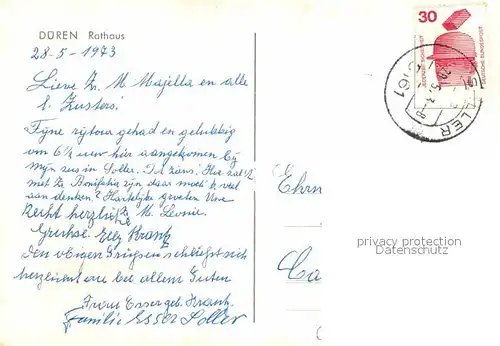 DÜREN Rathaus
28-5-1973
Lieve Z. M. Majella en alle
l. Zusters.
Fijne rijtour gehad en gelukkig
om 6½ uur hier aangekomen bij
mijn zus in Soller.
met Zr. Bonifatia zijn, daar moest ik veel
aan denken? Hartelijke groeten Uwe
Recht herzliche Zr M. Leonie.
Grüsse. Elly Krantz
Den obigen Grüssen schliesst sich
herzlichst an bei allem Guten
Frau Esser geb. Krantz.
Familie Esser Soller
30
DEUTSCHE BUNDESPOST
JEDERZEIT SICHERHEIT
5161
SOLLER
Ehrn
privacy protection
Datenschutz